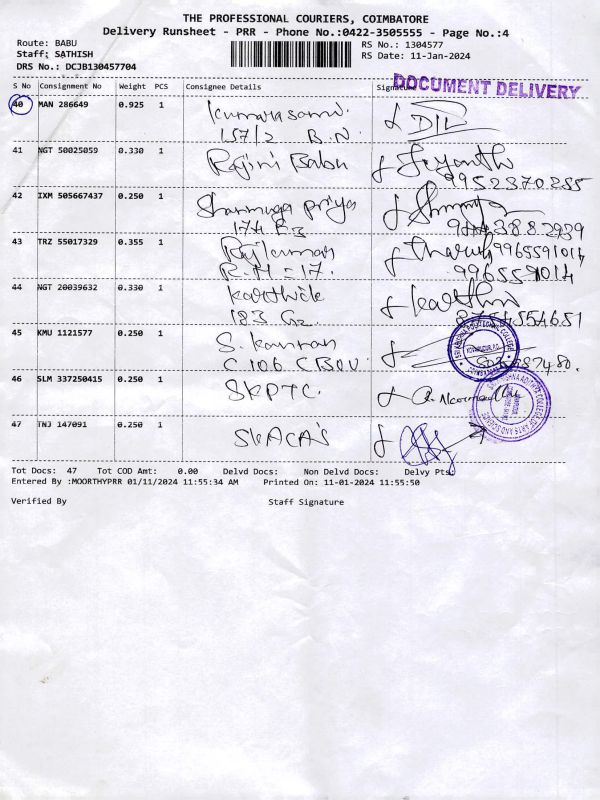 THE PROFESSIONAL COURIERS, COIMBATORE
Delivery Runsheet - PRR - Phone No.:0422-3505555 - Page No.:4
Route: BABU RS No.: 1304577
Staff: SATHISH RS Date: 11-Jan-2024
DRS No.: DCJB130457704
DOCUMENT DELIVERY
S No Consignment No Weight PCS Consignee Details Signature
40 MAN 286649 0.925 1 Kumarasami
157/2 B.N.
41 NGT 50025059 0.330 1 Rajini Babu Jeyanth
9952370255
42 IXM 505667437 0.250 1 Shanmuga priya
174 B3
43 TRZ 55017329 0.355 1 Rajkumar Tharun 9965591014
R.H = 17. 9965591014
44 NGT 20039632 0.330 1 Karthick Karthi
183 G2 8754554651
45 KMU 1121577 0.250 1 S. Kannan
C 106 CBOU.
46 SLM 337250415 0.250 1 SKPTC.
47 TNJ 147091 0.250 1 SKACAS
Tot Docs: 47 Tot COD Amt: 0.00 Delvd Docs: Non Delvd Docs: Delvy Pts:
Entered By :MOORTHYPRR 01/11/2024 11:55:34 AM Printed On: 11-01-2024 11:55:50
Verified By Staff Signature